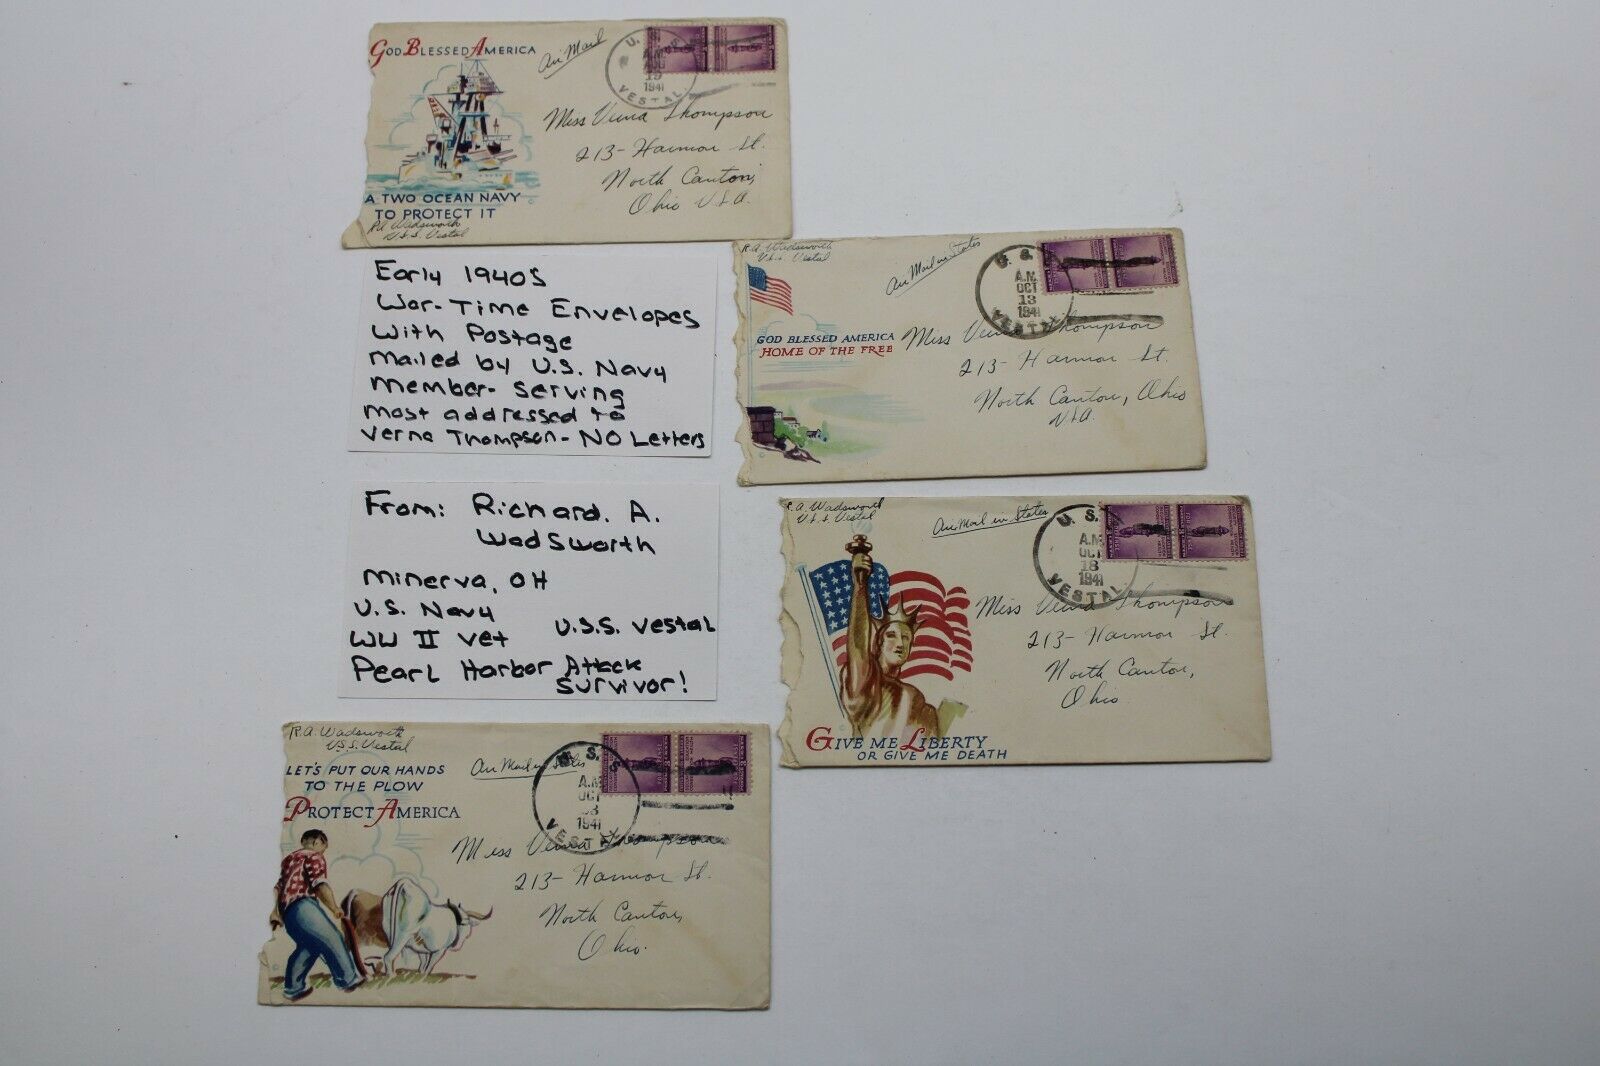 GOD BLESSED AMERICA
Air Mail
U. S. S.
A.M.
AUG
19
1941
VESTAL
Miss Verna Thompson
213- Harmon St.
North Canton,
Ohio U.S.A.
A TWO OCEAN NAVY
TO PROTECT IT
R.A. Wadsworth
U.S.S. Vestal
Early 1940s
War-Time Envelopes
With Postage
mailed by U.S. Navy
member- serving
most addressed to
Verna Thompson- NO Letters
From: Richard. A.
Wadsworth
Minerva, OH
U.S. Navy
WW II Vet U.S.S. Vestal
Pearl Harbor Attack
Survivor!
R.A. Wadsworth
U.S.S. Vestal
Air Mail in States
U. S.
A.M.
OCT
13
1941
VESTAL
GOD BLESSED AMERICA
HOME OF THE FREE
Miss Verna Thompson
213- Harmon St.
North Canton, Ohio
U.S.A.
R.A. Wadsworth
U.S.S. Vestal
Air Mail in States
U. S.
A.M.
OCT
18
1941
VESTAL
Miss Verna Thompson
213- Harmon St.
North Canton,
Ohio
GIVE ME LIBERTY
OR GIVE ME DEATH
R.A. Wadsworth
U.S.S. Vestal
Air Mail in States
S. S
A.M.
OCT
1941
VESTAL
LET'S PUT OUR HANDS
TO THE PLOW
PROTECT AMERICA
Miss Verna Thompson
213- Harmon St.
North Canton,
Ohio.